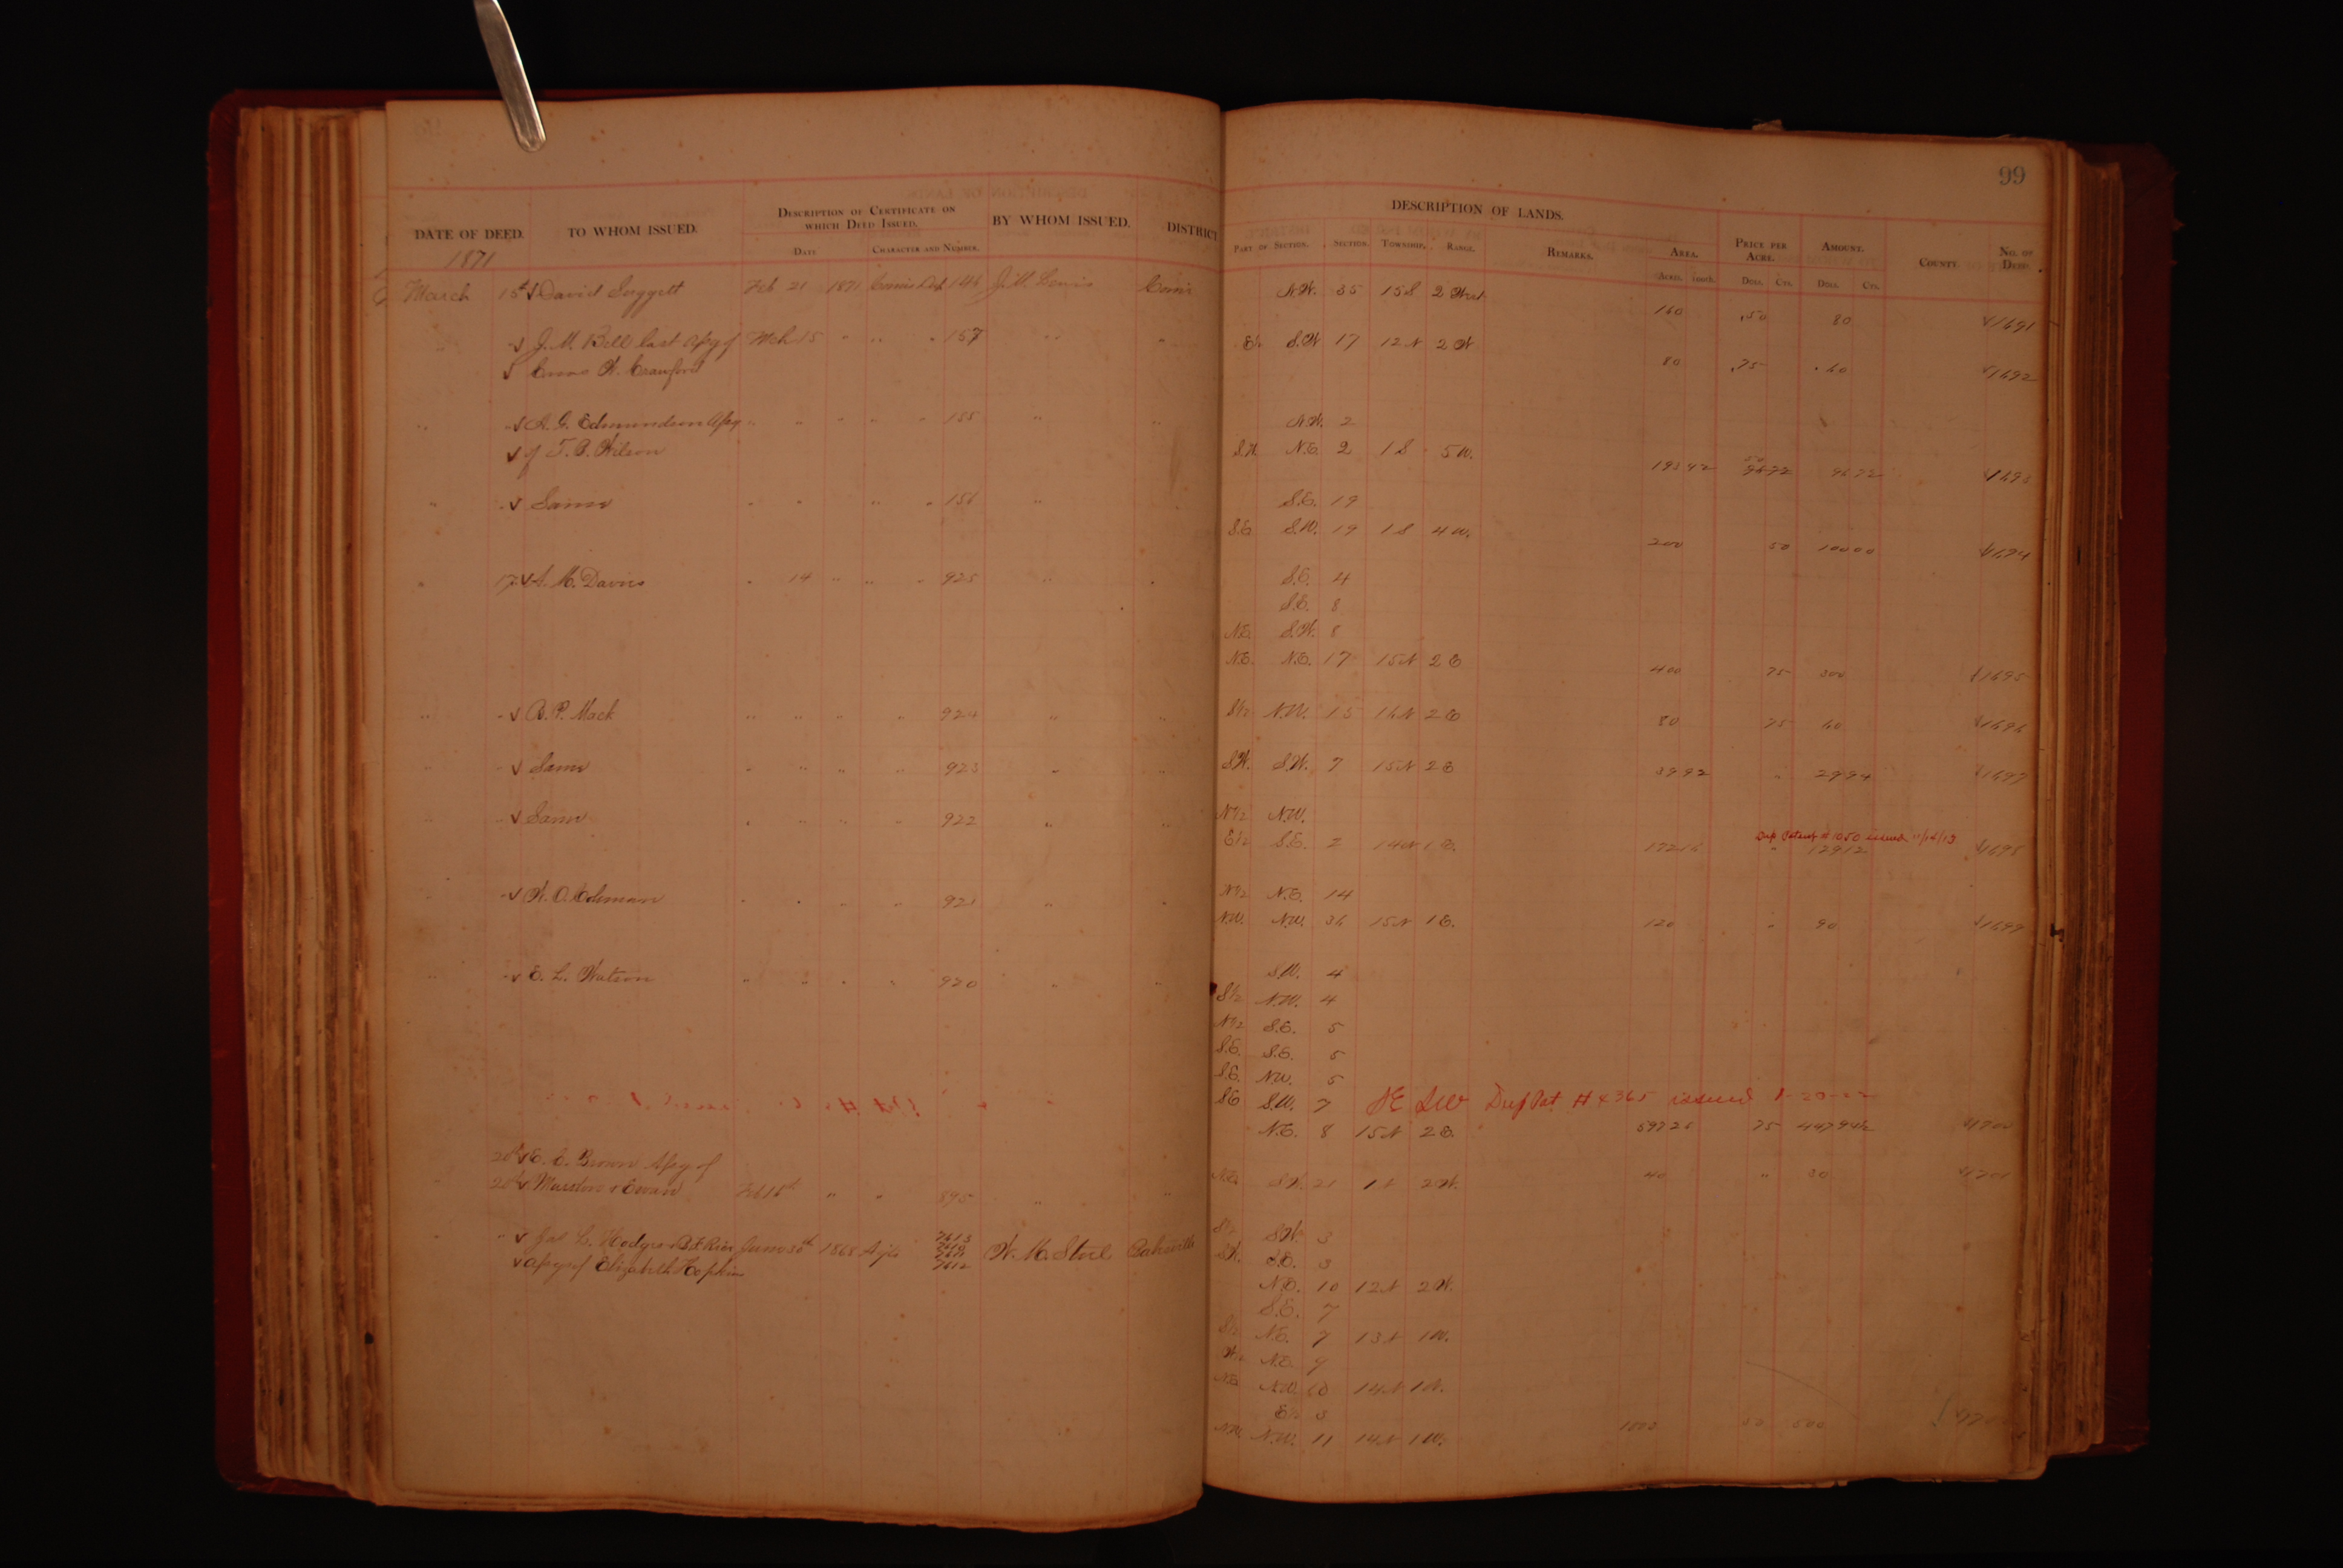 99
DESCRIPTION OF LANDS.
DATE OF DEED. TO WHOM ISSUED. DESCRIPTION OF CERTIFICATE ON WHICH DEED ISSUED. BY WHOM ISSUED. DISTRICT PART OF SECTION. SECTION. TOWNSHIP. RANGE. REMARKS. AREA. PRICE PER ACRE. AMOUNT. COUNTY NO. OF DEED.
DATE CHARACTER AND NUMBER. ACRES. 100TH. DOLS. CTS. DOLS. CTS.
1871
March 15th David Suggett Feb 21 1871 146 J. M. Lewis N.W. 35 15 S 2 West 160 .50 80 1691
" J. M. Bell last Asg of Mch 15 " " " 157 " " S.W 17 12 N 2 W 80 .75 60 1692
W. Crawford
" A. G. Edmundson Asg " " " " " 155 " " N.W. 2
of T. B. Wilson S.W. N.E. 2 1 S 5 W. 193 42 50 96 72 1693
" Same " " " " 156 " S.E. 19
S.E. S.W. 19 1 S 4 W. 200 50 100 00 1694
" 17 A. M. Davis " 14 " " " 925 " " S.E. 4
S.E. 8
N.E. S.W. 8
N.E. N.E. 17 15 N 2 E 400 75 300 1695
" " B. P. Mack " " " " 924 " " S1/2 N.W. 15 16 N 2 E 80 75 60 1696
" " Same " " " " 923 " " S.W. S.W. 7 15 N 2 E 39 92 " 29 94 1697
" " Same " " " " 922 " " N1/2 N.W.
E1/2 S.E. 2 14 N 1 E. 172 16 " 129 12 1698
Dup Patent # 1050 issued 11/14/13
" " W. O. Coleman " " " " 921 " " N1/2 N.E. 14
N.W. N.W. 36 15 N 1 E. 120 " 90 1699
" " E. L. Watson " " " " 920 " " S.W. 4
S1/2 N.W. 4
N1/2 S.E. 5
S.E. S.E. 5
S.E. N.W. 5
S.E. S.W. 7 SE SW Dup Pat # 4365 issued
N.E. 8 15 N 2 E. 597 26 75 447 94 1/2 1700
E. C. Brown Asg. of
20th Marston & Cowan Feb 16th " " 895 " " S.W. 21 1 N 2 W. 40 " 30 1701
" Jas L. Hodges June 30th 1868 7613 W. M. Steel Batesville S1/2 S.W. 3
Asgs of Elizabeth Hopkins 7612 S.W. S.E. 3
N.E. 10 12 N 2 W.
S.E. 7
S1/2 N.E. 7 13 N 1 W.
N.E. 9
N.E. N.W. 10 14 N 1 W.
E1/2 3
N.W. N.W. 11 14 N 1 W. 1000 50 500